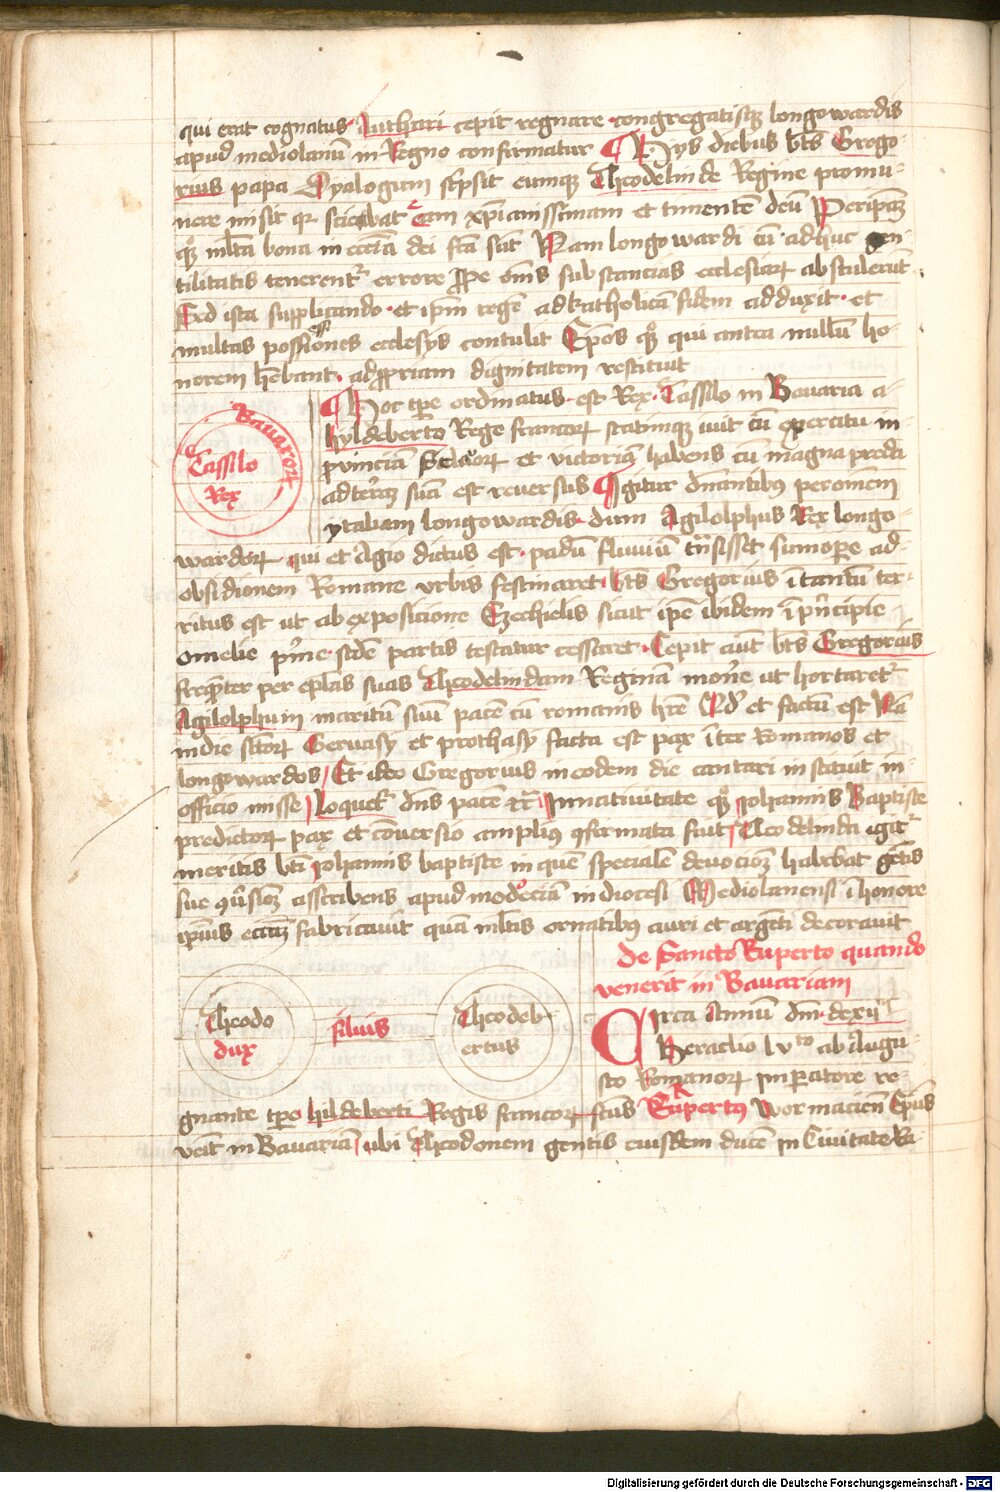 qui erat cognatus Authari cepit regnare congregatisqȝ longowardis
apud mediolanū in Regno confirmatur Hys diebus bt̄s Grego-
rius papa Dyalogum sc̄psit eumqȝ Theodelinde Regine promu-
nere misit qr sciebat Eam xp̄ianissimam et timentē deū Per ip̄am
qͦȝ ml̄ta bona in eccl̄ia dei fc̄a sūt Nam longowardi cū adhuc gen
tilitatis tenerentr errore ꝓpe om̄s substancias ecclesiaꝝ abstulerūt
Sed ista supplicando et ip̄m regē ad katholicā fidem adduxit et
multas possiōnes ecclesys contulit Ep̄os qͦȝ qui antea nullū ho-
norem hēbant ad ꝓpriam dignitatem restituit
Hoc tp̄e ordinatus est Rex Tassilo in Bauaria a
hyldeberto Rege francoꝝ statimqȝ iuit cū exercitu in
prouinciā Sclauoꝝ et victoriam habens cum magna preda
ad terrā suā est reuersus Igitur dn̄antibus per omnem
ytaliam longowardis dum Agilolphus Rex longo-
Bauaroꝝ
Tassilo
Rex
wardoꝝ qui et Agio dictus est padū fluuiū trāsisset summoꝑe ad
obsidionem Romane vrbis festinaret bt̄s Gregorius ī tantū ter-
ritus est ut ab exposicione Ezechielis sicut ip̄e ibidem ī prīcipie
omelie prīe sc̄de partis testatur cessaret Cepit aūt bt̄s Gregorius
freqūter per ep̄las suas Theodelindam Reginā monē ut hortaretr
Agilolphum maritū suū pacē cū romanis hr̄e Qd̄ et factū est Nā
in die sc̄oꝝ Geruasy et prothasy facta est pax īter Romanos et
longowardos Et ideo Gregorius in eodem die cantari instituit in
officio misse Loquetr dn̄s pacē et̄c In natiuitate qͦȝ Johannis Baptiste
predictoꝝ pax et cōuersio amplius ꝯfirmata fuit Theodelinda igitr
meritis bt̄i Johannis baptiste in quē specialē deuocioȝ habebat gētis
sue ꝯūsioȝ asscribens apud modociā in diocesi Mediolanensi ī honore
ip̄ius eccl̄iaȝ fabricauit quā ml̄tis ornatibus auri et argēti decorauit
de Sancto Ruperto quando
venerit in Bauariam
Theodo
dux
filius
Theodeb-
ertus
Circa Annū Dm̄ dcxij
Heraclio lvto ab Augu-
sto Romanoꝝ imꝑatore re-
gnante tp̄e hildeberti Regis francoꝝ sc̄us Rupertus Wormacien̄ Ep̄us
veīt in Bauariā ubi Theodonem gentis eiusdem ducē in Ciuitate Ra-
Digitalisierung gefördert durch die Deutsche Forschungsgemeinschaft - DFG